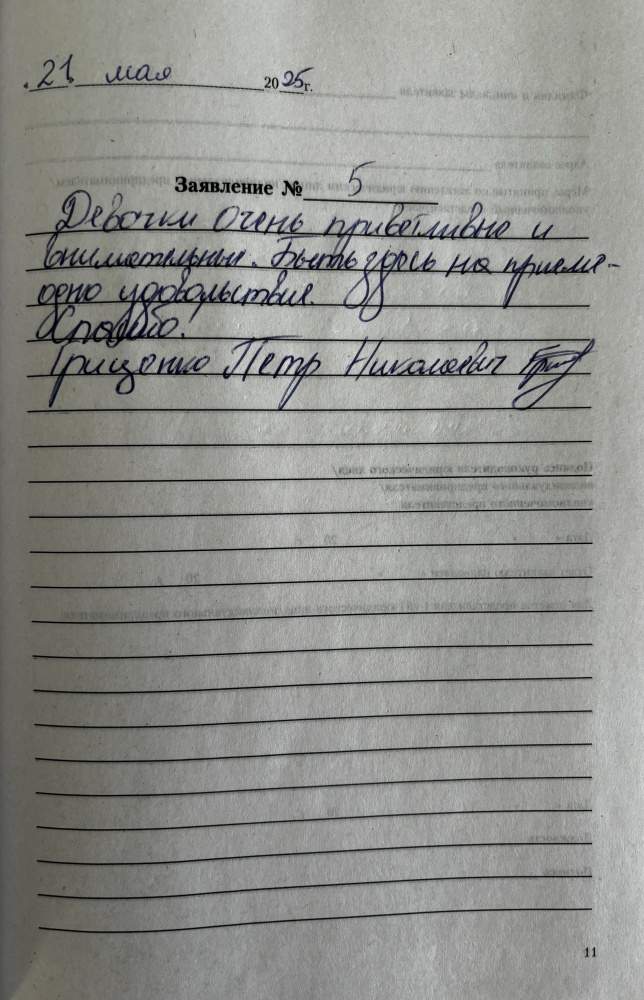 21 мая 2025 г.
Заявление № 5
Девочки очень приветливые и
внимательные. Быть здесь на приеме -
одно удовольствие.
Спасибо!
Грищенко Петр Николаевич
11